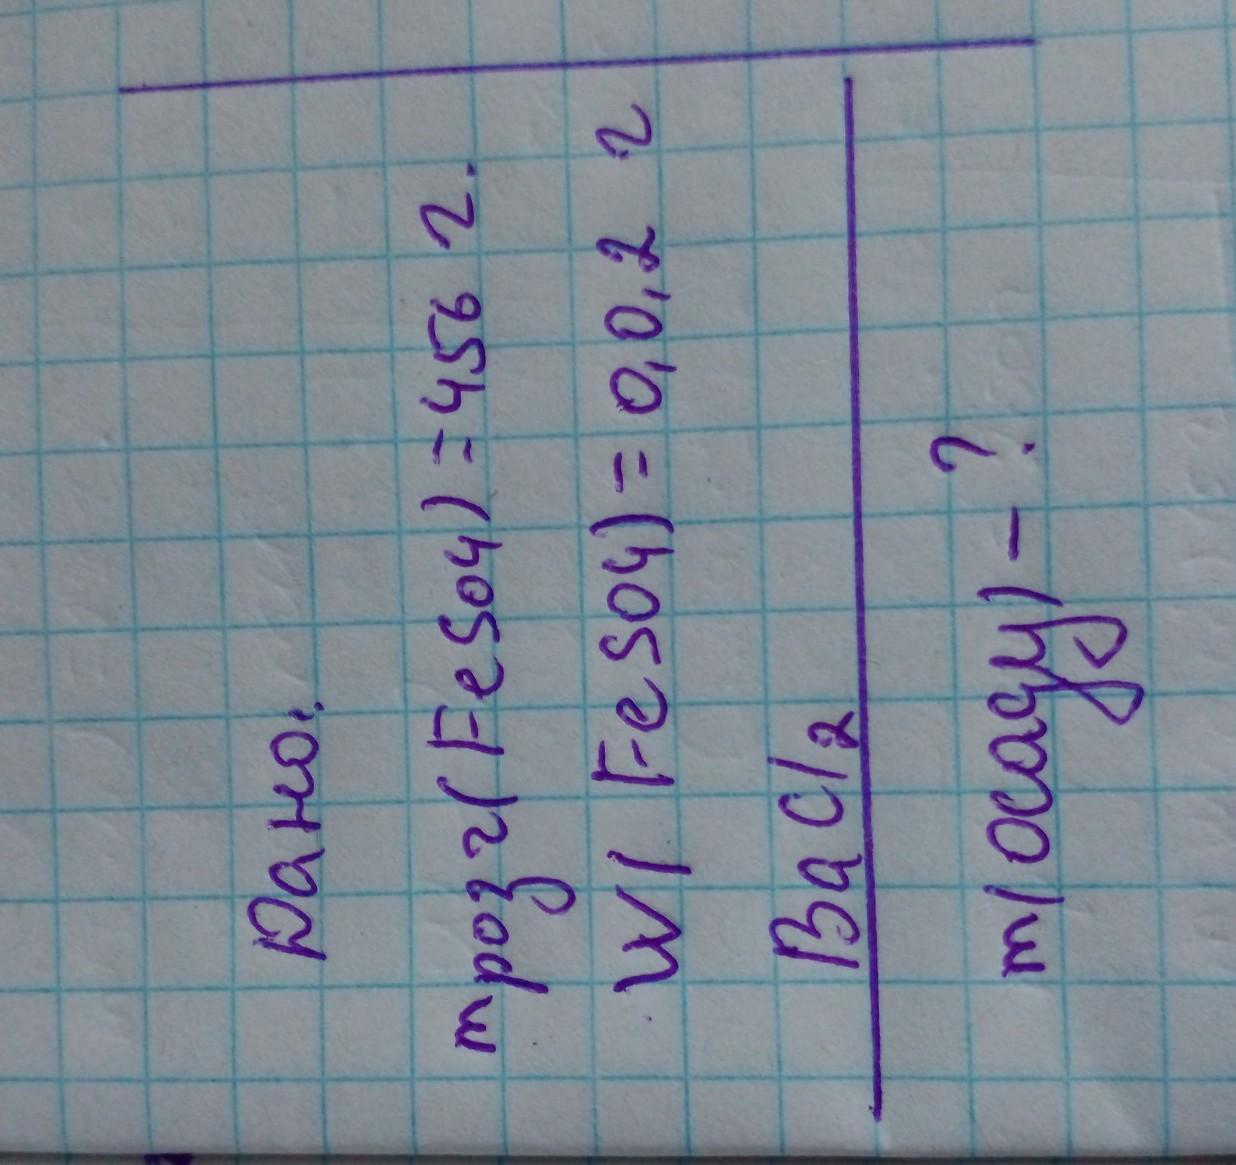 Дано:
mрозг(FeSO4) = 456 г.
W(FeSO4) = 0,0,2 г
BaCl2
m(осаду) - ?